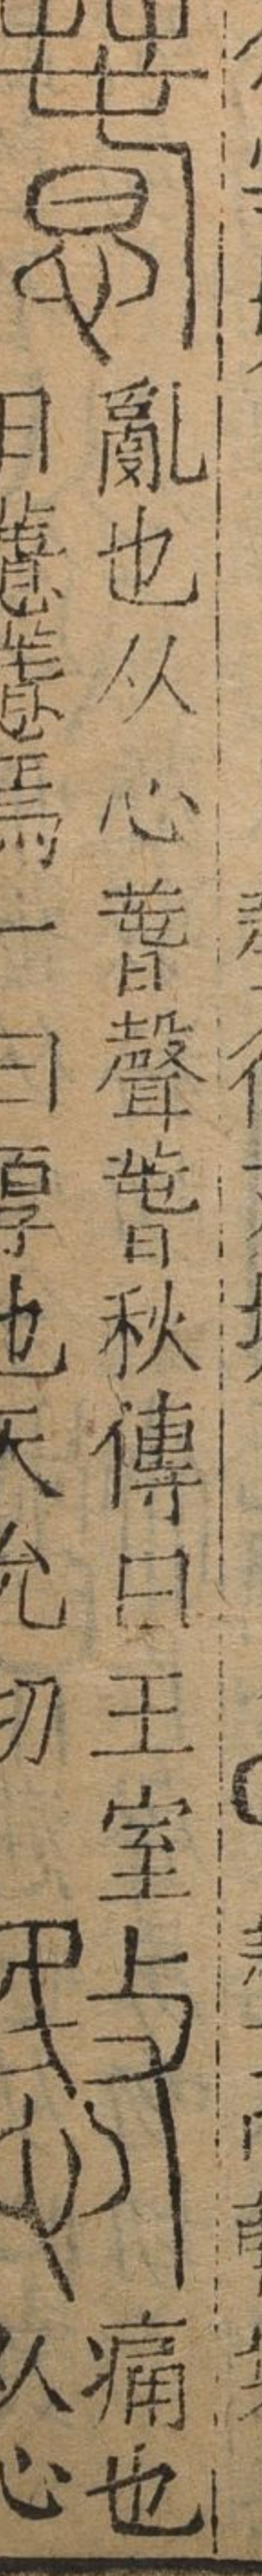 惷
亂也从心萅聲萅秋傳曰王室
日惷惷焉一曰厚也尺允切
慇
痛也
从心